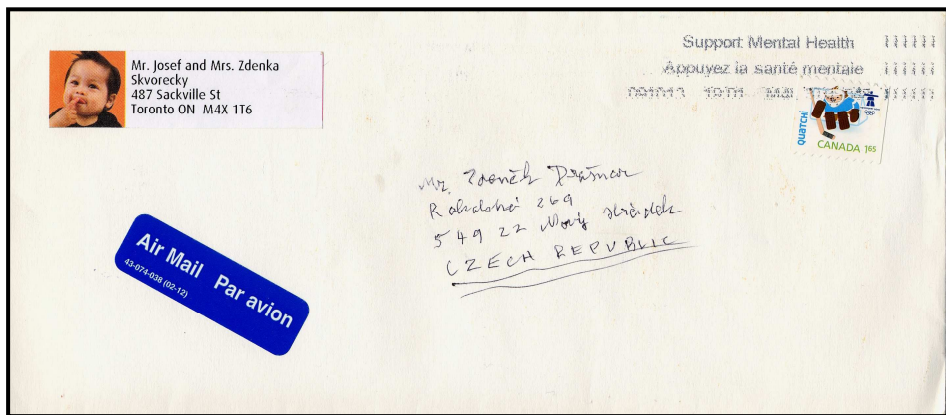 Mr. Josef and Mrs. Zdenka
Skvorecky
487 Sackville St
Toronto ON M4X 1T6
Support Mental Health
Appuyez la santé mentale
QUATCHI
CANADA 165
Mr. Zdeněk
269
549 22 Nový Hrádek
CZECH REPUBLIC
Air Mail Par avion
43-074-038 (02-12)